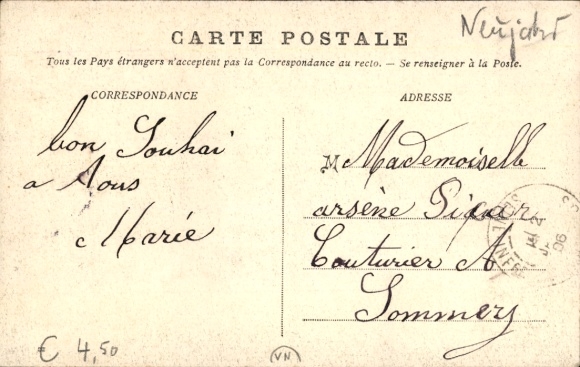 Neujahr
CARTE POSTALE
Tous les Pays étrangers n'acceptent pas la Correspondance au recto. — Se renseigner à la Poste.
CORRESPONDANCE
ADRESSE
bon Souhai
a Tous
Marie
M Mademoiselle
arsène
Couturier A
Sommery
€ 4,50
VN